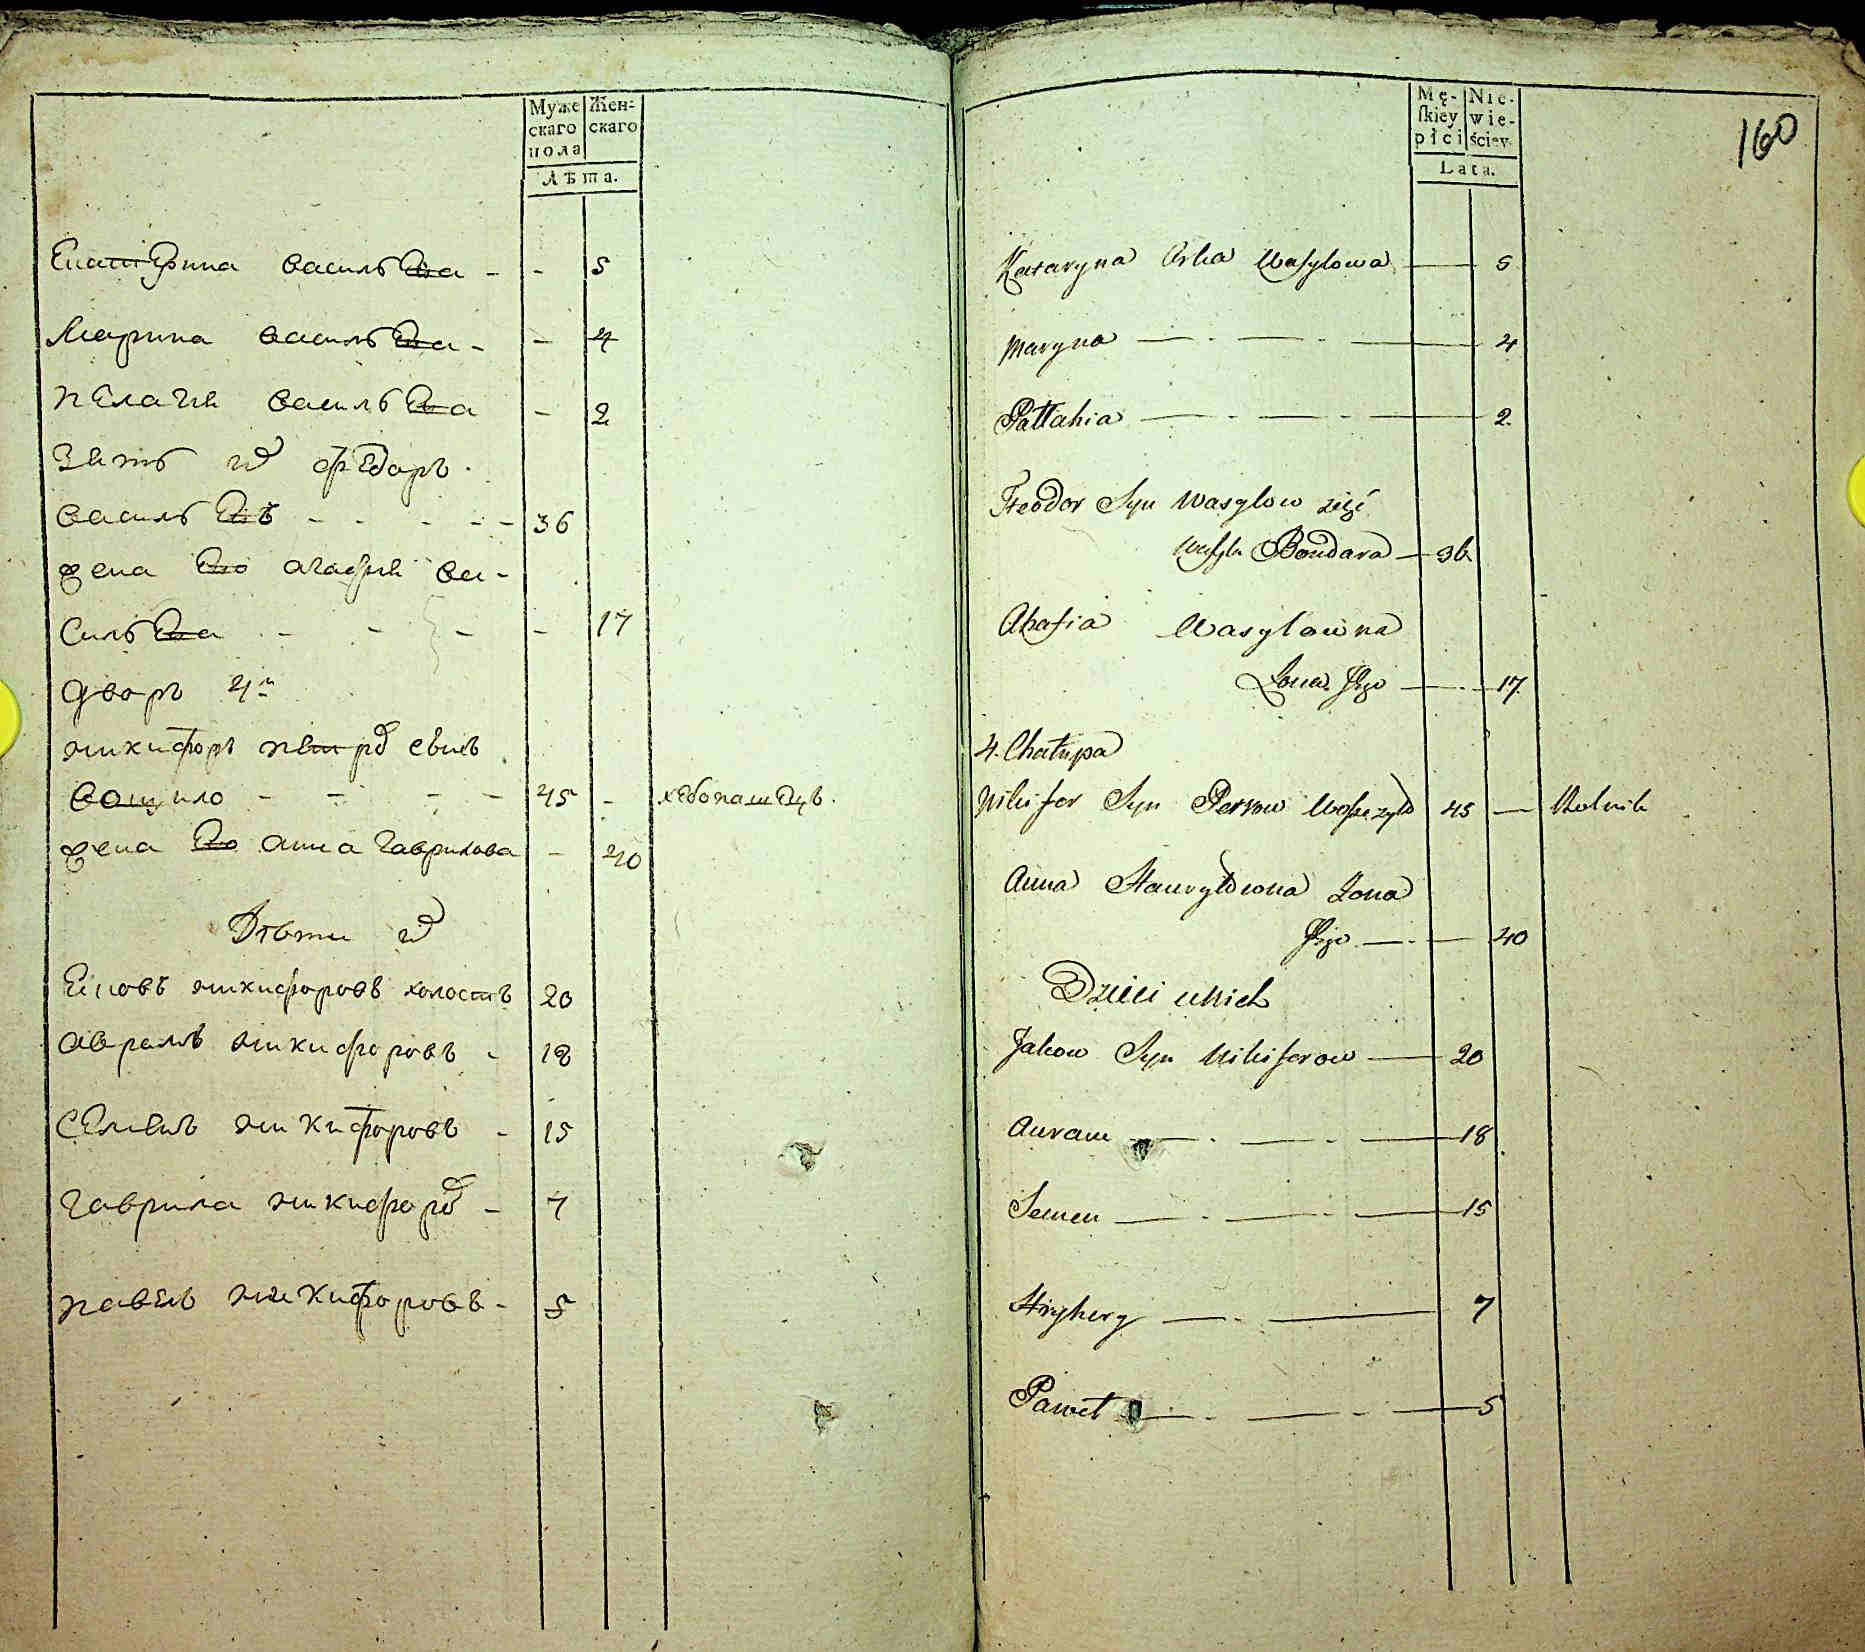 Муже
скаго
пола
Жен=
скаго
Лѣта.
Екатерина васильева - - 5
Марина васильева - - 4
пелагия васильева - 2
Зять их федоръ
васильевъ - - - - - 36
жена ево агафия ва-
сильева - - - - 17
дворъ 4й
никифоръ петровъ сынъ
ващило - - - - 45 - хлебопашецъ.
жена ево анна гаврилова - 40
Дѣти их
Яковъ никифоровъ холостъ 20
аврамъ никифоровъ - 18
семенъ никифоровъ - 15
гаврила никифоровъ - 7
павелъ никифоровъ - 5
Mę-
skiey
płci
Nie-
wie-
ściey
Lata.
160
Kataryna Crka Wasylowa 5
Maryna 4
Pałłahia 2.
Fteodor Syn Wasylow zięć
Wasyla Bondara 36.
Ahafia Wasylowna
Zona Jego 17.
4. Chałupa
Nikifor Syn Petrow Waszczyło 45 — Rolnik
Anna Hawryłowna Zona
Jego 40
Dzieci u Nich
Jakow Syn Nikiforow 20
Auram 18
Semen 15
Hryhory 7
Paweł 5